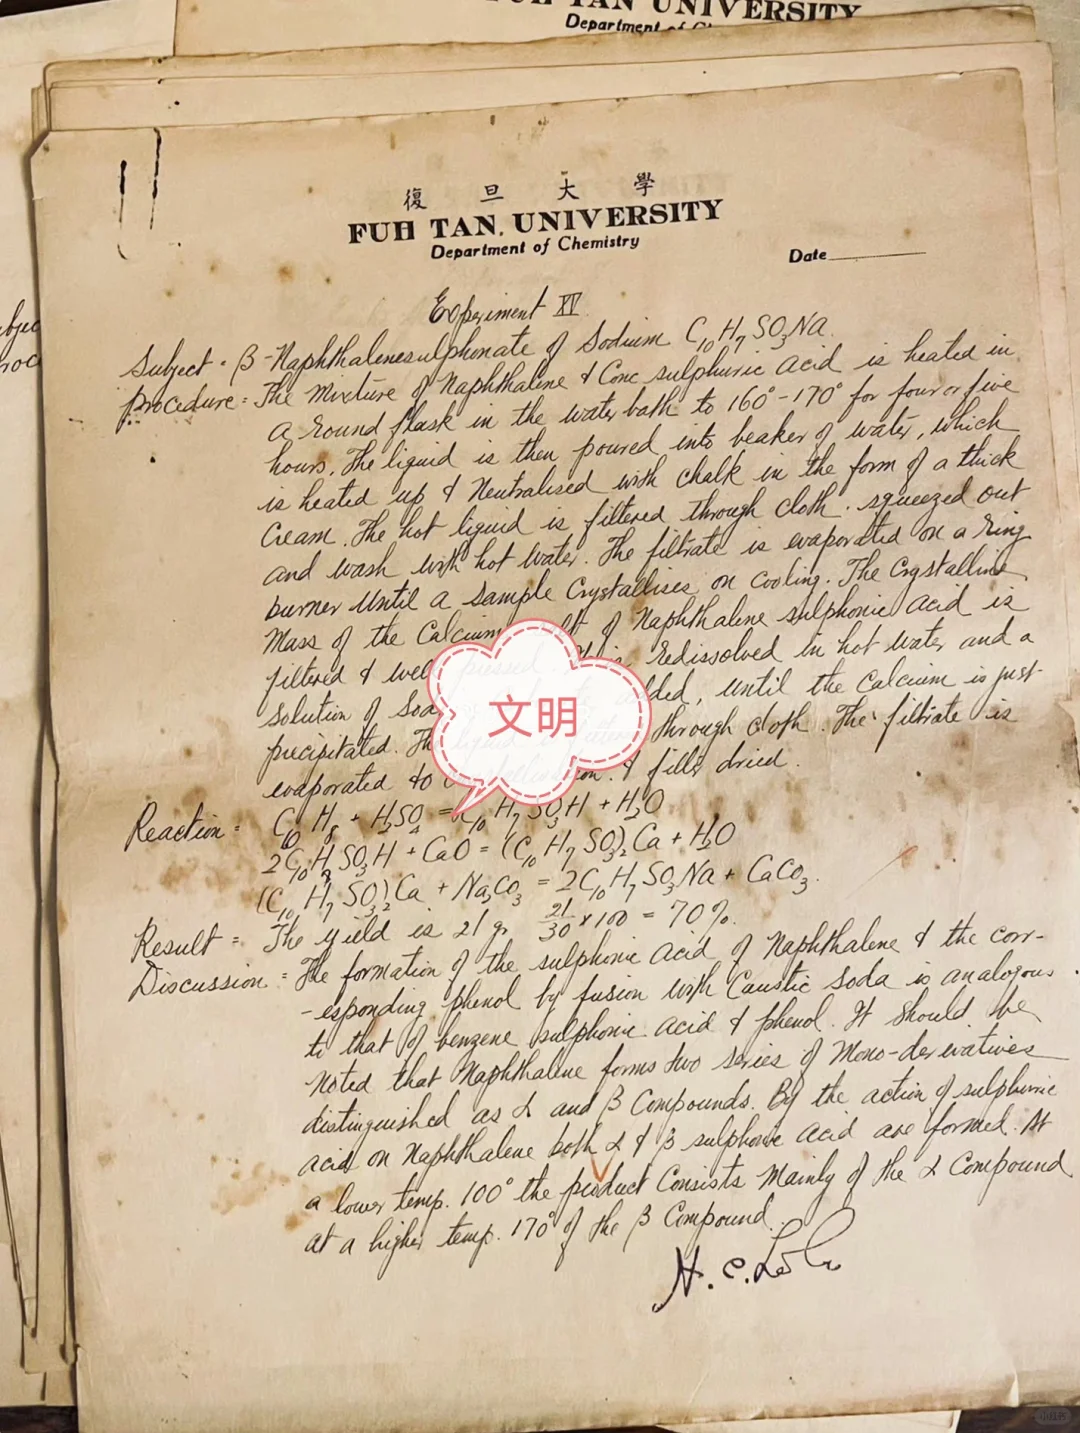 FUH TAN UNIVERSITY
Department of
復旦大學
FUH TAN UNIVERSITY
Department of Chemistry
Date
Experiment XV
Subject = β-Naphthalenesulphonate of Sodium C10H7SO3Na
Procedure = The Mixture of Naphthaline & Conc sulphuric Acid is heated in
a round flask in the water bath to 160°-170° for four or five
hours. The liquid is then poured into beaker of water, which
is heated up & Neutralised with chalk in the form of a thick
Cream. The hot liquid is filtered through cloth. squeezed out
and wash with hot water. The filtrate is evaporated on a ring
burner Until a Sample Crystallises on Cooling. The Crystalline
Mass of the Calcium of Naphthaline sulphonic acid is
filtered & well redissolved in hot water and a
solution of until the Calcium is just
precipitated. through cloth. The filtrate is
evaporated to & dried.
文明
Reaction = C10H8 + H2SO4 = C10H7SO3H + H2O
2C10H7SO3H + CaO = (C10H7SO3)2Ca + H2O
(C10H7SO3)2Ca + Na2CO3 = 2C10H7SO3Na + CaCO3.
Result = The yield is 21 gr 21/30 x 100 = 70%.
Discussion = The formation of the sulphonic Acid of Naphthalene & the corr-
-esponding phenol by fusion with Caustic Soda is analogous
to that of benzene sulphonic acid & phenol. It should be
Noted that Naphthaline forms two series of Mono-derivatives
distinguished as α and β Compounds. By the action of sulphuric
acid on Naphthalene both α & β sulphonic acid are formed. At
a lower temp. 100° the product Consists Mainly of the α Compound
at a higher temp. 170° of the β Compound.
H. C.
小红书